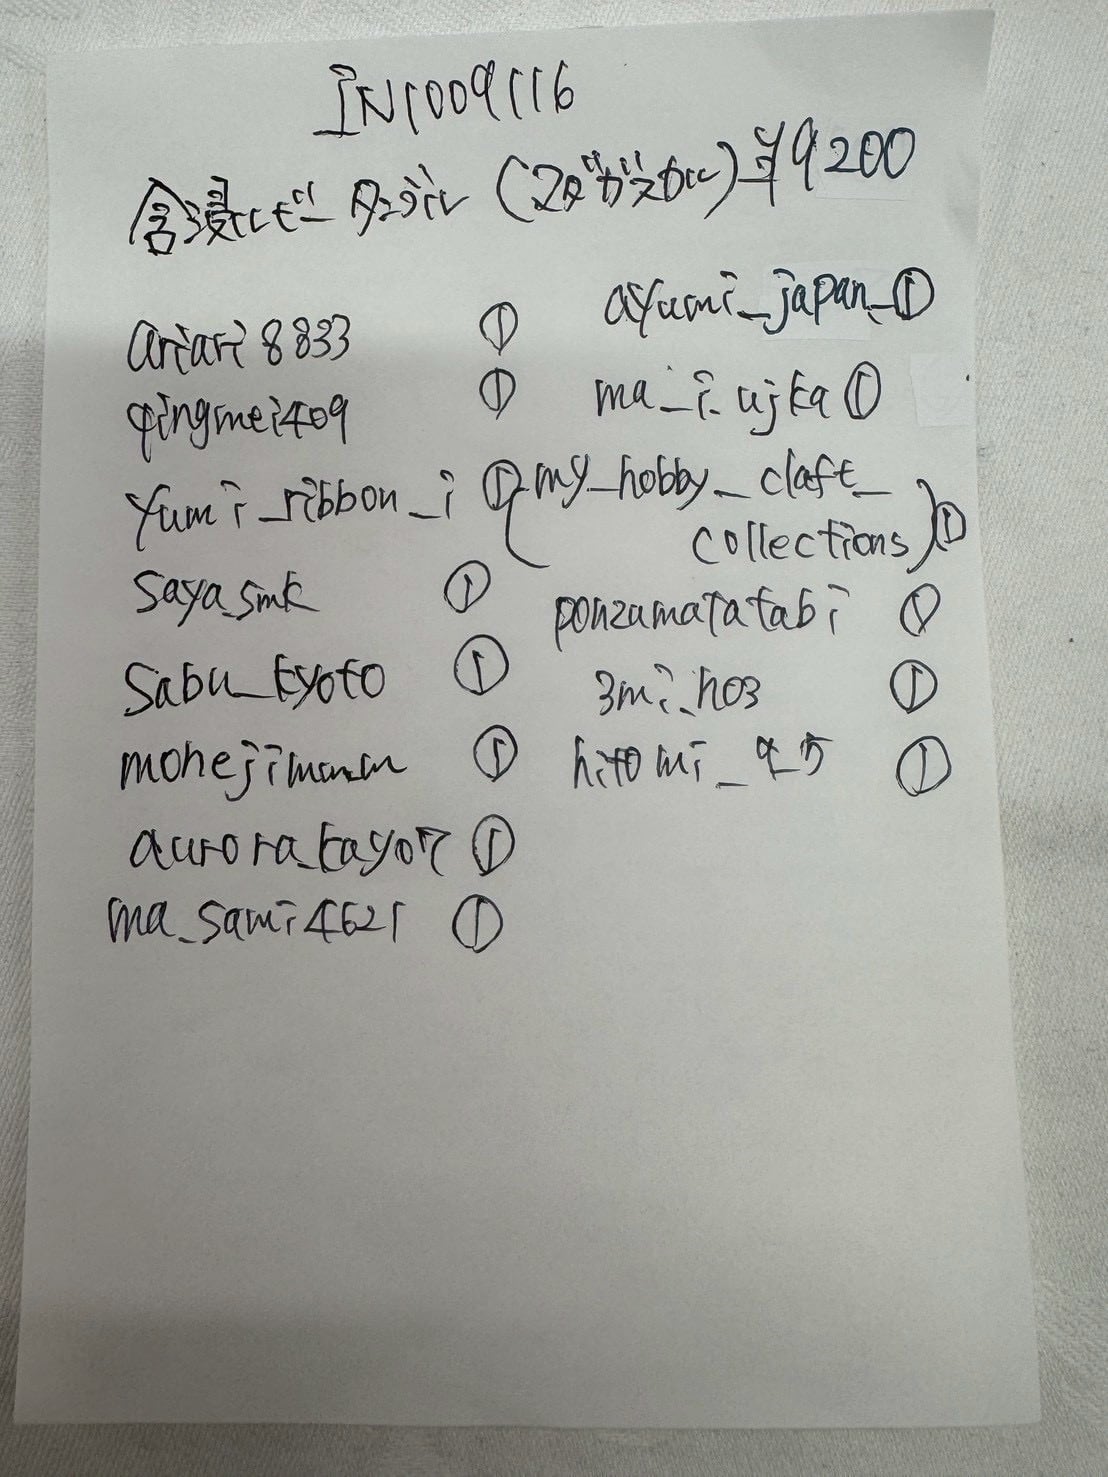 IN1009116
含浸ルビー タンブル (マダガスカル) ¥9200
ariari8833 ①
qingmei409 ①
yumi_ribbon_i ①
saya_smk ①
sabu_kyoto ①
mohejimama ①
aurora_kayo7 ①
ma_sami4621 ①
ayumi_japan_ ①
ma_i_ujka ①
my_hobby_claft_
collections ①
ponzamatatabi ①
3mi_ho3 ①
hitomi_9_5 ①